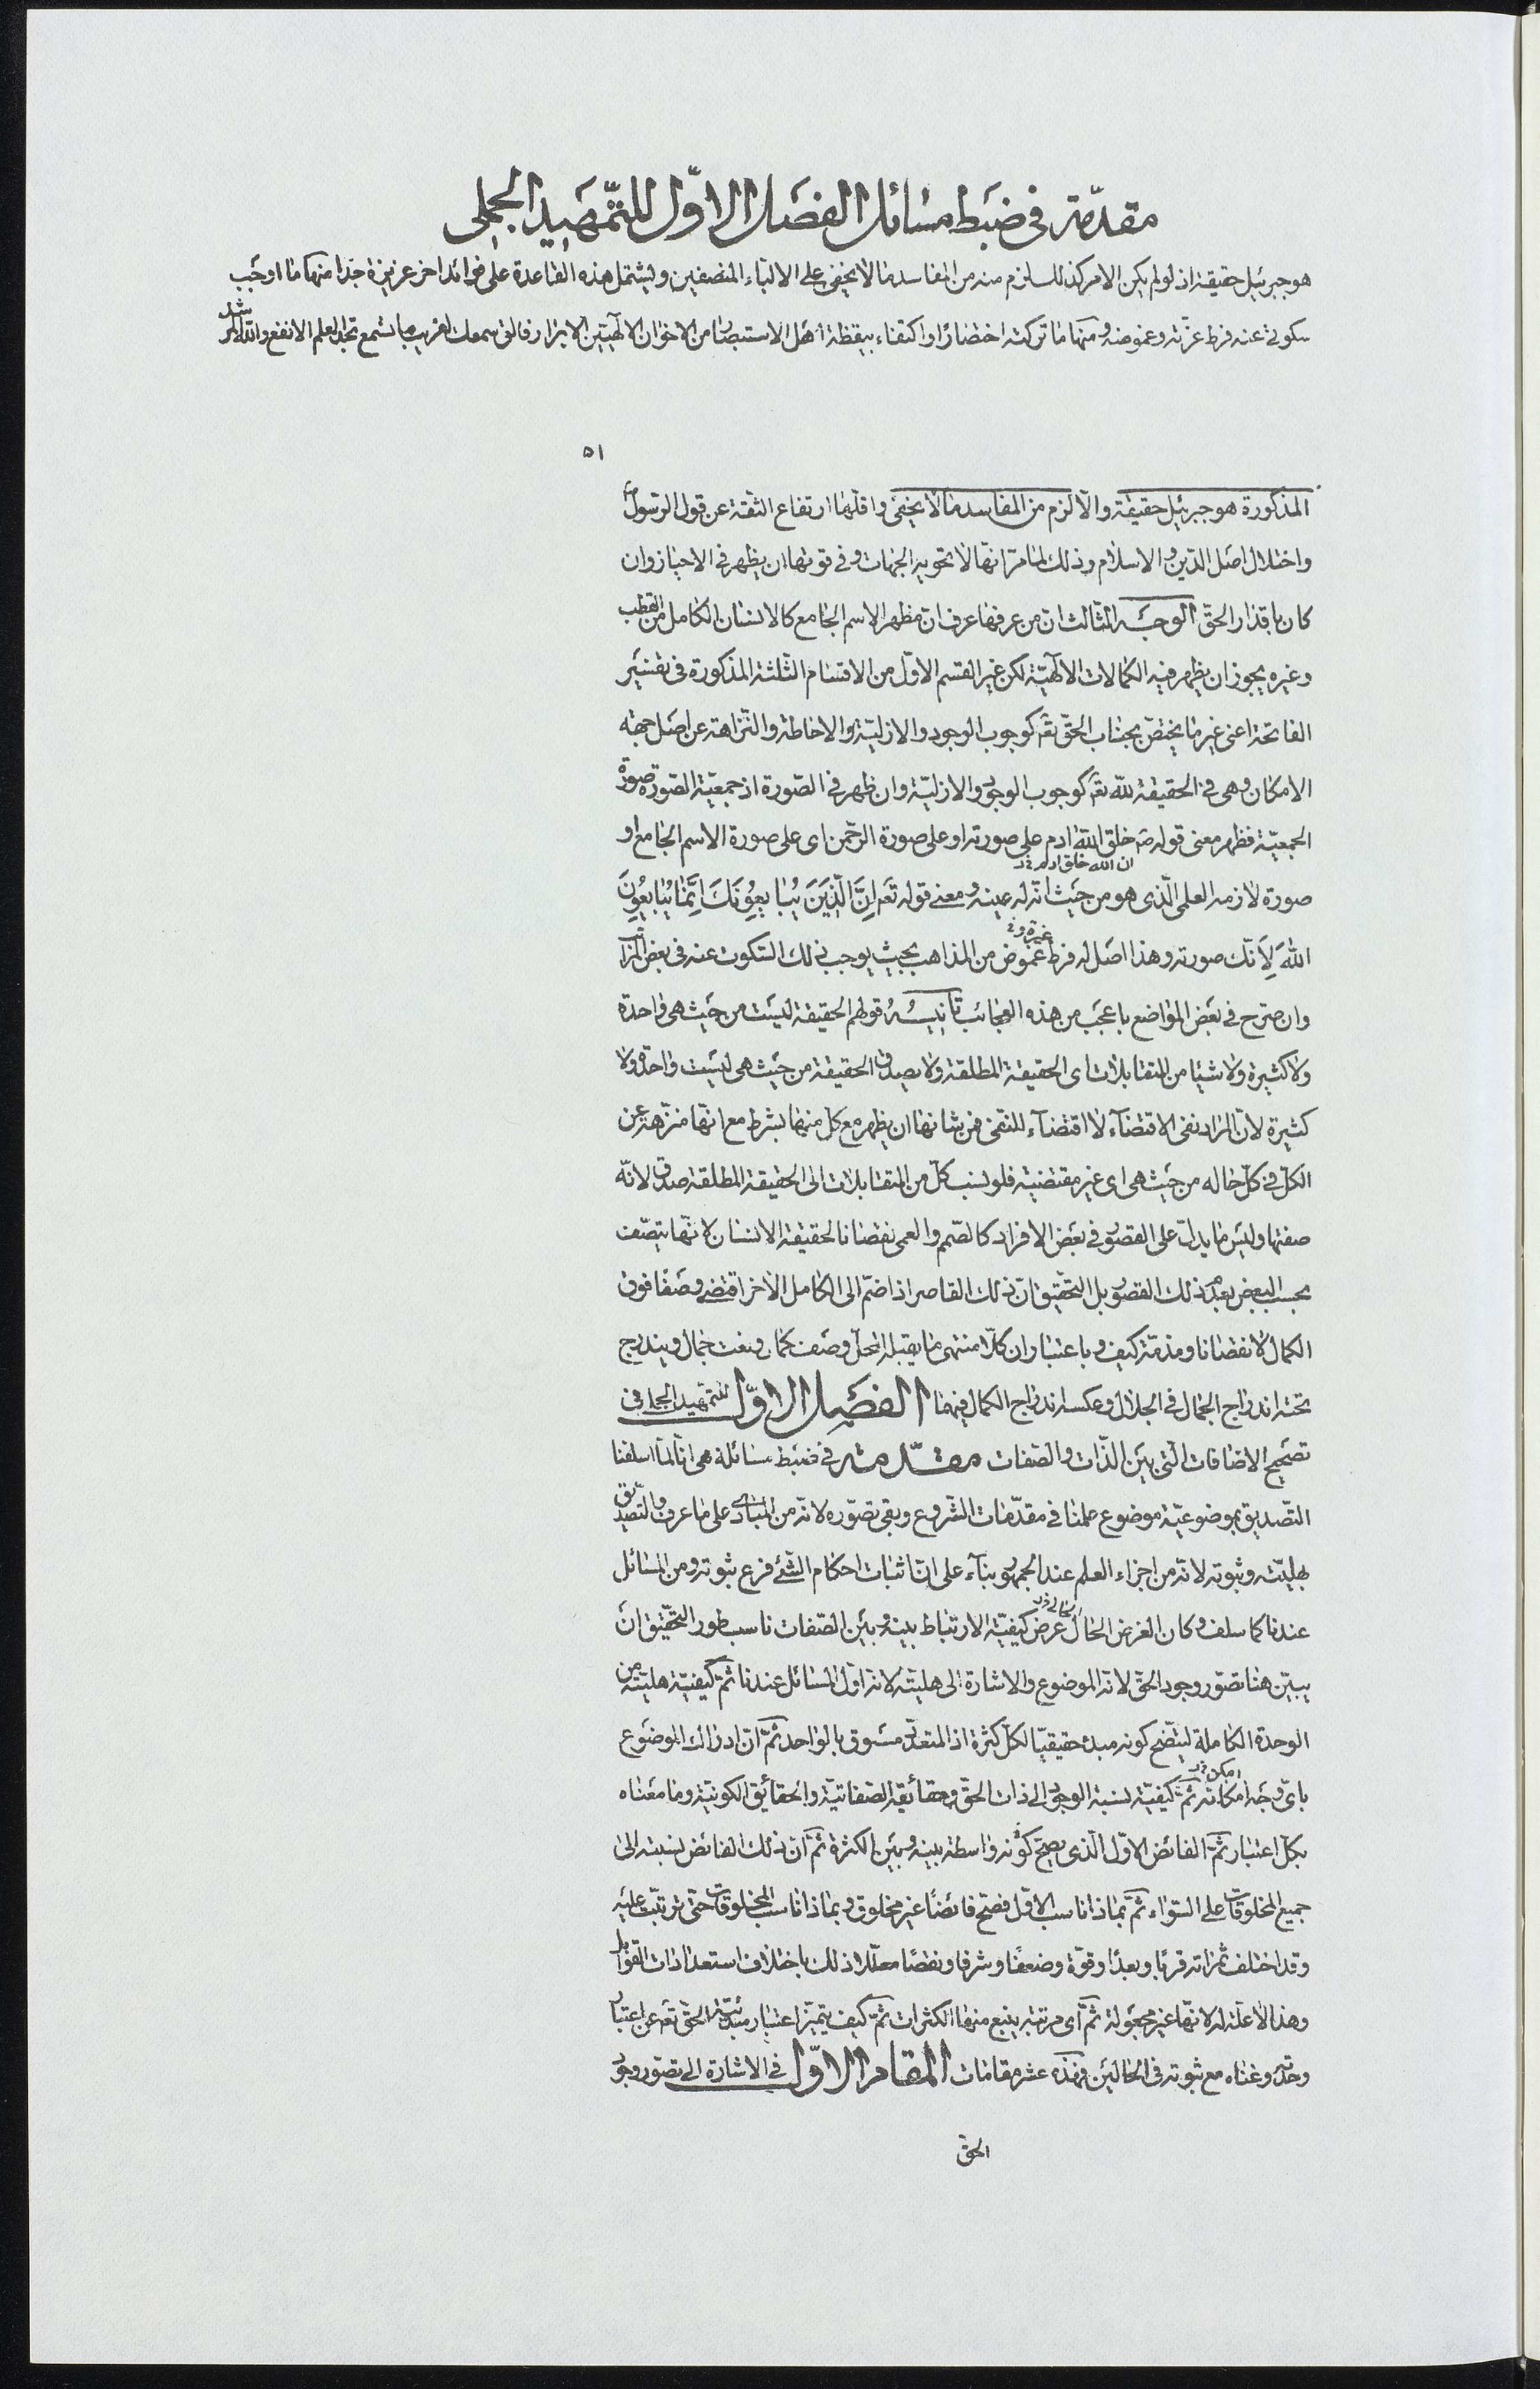 مقدّمة فی ضبط مسائل الفصل الاوّل للتّمهید الجملی
هو جبرئیل حقیقة اذ لو لم یکن الامر کذلک للزم منه من المفاسد ما لا یخفی علی الالبّاء المنصفین ویشتمل هذه القاعدة علی فوائد اخر عزیزة جدّا منها ما اوجب
سکوتی عنه فرط عزّته وغموضه ومنها ما ترکته اختصارا واکتفاء بیقظة اهل الاستبصار من الاخوان الالٓهیّین الابرار فالق سمعک لغریب ما تسمع تجد العلم الانفع والله المرشد
٥١
المذکورة هو جبرئیل حقیقة والّا لزم من المفاسد ما لا یخفی واقلّها ارتفاع الثّقة عن قول الرّسول ص
واختلال اصل الدّین والاسلام وذلک لما مرّ انّها لا تحویه الجهات وفی قوتها ان یظهر فی الاحیاز وان
کان باقدار الحقّ الوجه الثّالث انّ من عرفها عرف انّ مظهر الاسم الجامع کالانسان الکامل من القطب
وغیره یجوز ان یظهر فیه الکمالات الالٓهیّة لکن غیر القسم الاوّل من الاقسام الثّلثة المذکورة فی تفسیر
الفاتحة اعنی غیر ما یختصّ بجناب الحقّ تعٓ کوجوب الوجود والازلیّة والاحاطة والنّزاهة عن اصل جهة
الامکان وهی فی الحقیقة للّه تعٓ کوجوب الوجود والازلیّة وان ظهر فی الصّورة اذ جمعیّة الصّورة صورة
الجمعیّة فظهر معنی قوله صٓ خلق اللّه ادم علی صورته او علی صورة الرّحمن ای علی صورة الاسم الجامع او
ان الله خلق ادم خ د
صورة لازمه العلمی الّذی هو من حیث انّه له عینه ومعنی قوله تعٓ اِنَّ الَّذِیَنَ یُبَایِعُونَکَ اِنَّمَا یُبَایِعُونَ
اللّهَ لِاَنّک صورته وهذا اصل له فرط غموض من المذاهب بحیث یوجب ذلک السّکوت عنه فی بعض المراتب
وان صرّح فی بعض المواضع باعجب من هذه العجائب تانیسُهُ قولهم الحقیقة لیست من حیث هی واحدة
ولا کثیرة ولا شیئا من المتقابلات ای الحقیقة المطلقة ولا یصدق الحقیقة من حیث هی لیست واحدة ولا
کثیرة لانّ المراد نفی الاقتضآء لا اقتضآء للنّفی فمن شانها ان یظهر مع کلّ منهما بشرط مع انّها منزّهة عن
الکلّ فی کلّ حاله من حیث هی ای غیر مقتضیة فلو نسب کلّ من المتقابلات الی الحقیقة المطلقة صدق لانّه
صفتها ولیس ما یدلّ علی القصور فی بعض الافراد کالصّمم والعمی نقصانا لحقیقة الانسان لانّها یتّصف
بحسب البعض بعدم ذلک القصور بل التّحقیق انّ ذلک القاصر اذا ضمّ الی الکامل الآخر اقتضی وصفا فوق
الکمال لا نقصانا ومذمّة کیف وباعتبار ان کلّا منتهی ما یقبله المحلّ وصف کمال ونعت جمال ویندرج
تحته اندراج الجمال فی الجلال وعکسه اندراج الکمال فیهما الفصل الاوّل للتّمهید الجملی فی
تصحیح الاضافات الّتی بین الذّات والصّفات مقدّمة فی ضبط مسائله هی انّا لمّا اسلفنا
التّصدیق بموضوعیّة موضوع علمنا فی مقدّمات الشّروع وبقی تصّوره لانّه من المبادی علی ما عرف والتّصدیق
بهلیّته وثبوته لانّه من اجزاء العلم عند الجمهور بنآء علی انّ اثبات احکام الشّیٔ فرع ثبوته ومن المسائل
عندنا کما سلف وکان الغرض الحالّ عرض کیفیّة الارتباط بینه وبین الصّفات ناسب طور التّحقیق ان
یبیّن هنا تصوّر وجود الحقّ لانّه الموضوع والاشارة الی هلیّته لانّه اوّل المسائل عندنا ثمّ کیفیّة هلیّته من
الوحدة الکاملة لیتّضح کونه مبدء حقیقیّا لکلّ کثرة اذ المتعدّد مسبوق بالواحد ثمّ انّ ادراک الموضوع
بایّ وجه امکانه ثمّ کیفیّة نسبة الوجود الی ذات الحقّ وحقائقه الصّفاتیّة والحقائق الکونیّة وما معناه
بکلّ اعتبار ثمّ الفائض الاوّل الّذی یصحّ کونه واسطة بینه وبین الکثرة ثمّ انّ ذلک الفائض نسبته الی
جمیع المخلوقات علی السّواء ثمّ بماذا ناسب الاوّل فصحّ فائضًا غیر مخلوق وبماذا ناسب المخلوقات حتّی ترتّبت علیه
وقد اختلف ثمراته قربًا وبعدًا وقوّة وضعفًا وشرفا ونقصًا معلّلا ذلک باختلاف استعدادات القوابل
وهذا لا علّة له لانّها غیر مجعولة ثمّ ای مرتبة ینبع منها الکثرات ثمّ کیف یتمیّز اعتبار مبدئیّة الحقّ تعٓ عن اعتبار
وحدته وغناه مع ثبوته فی الحالین فهذه عشر مقامات المقام الاوّل فی الاشارة الی تصوّر وجود
الحقّ